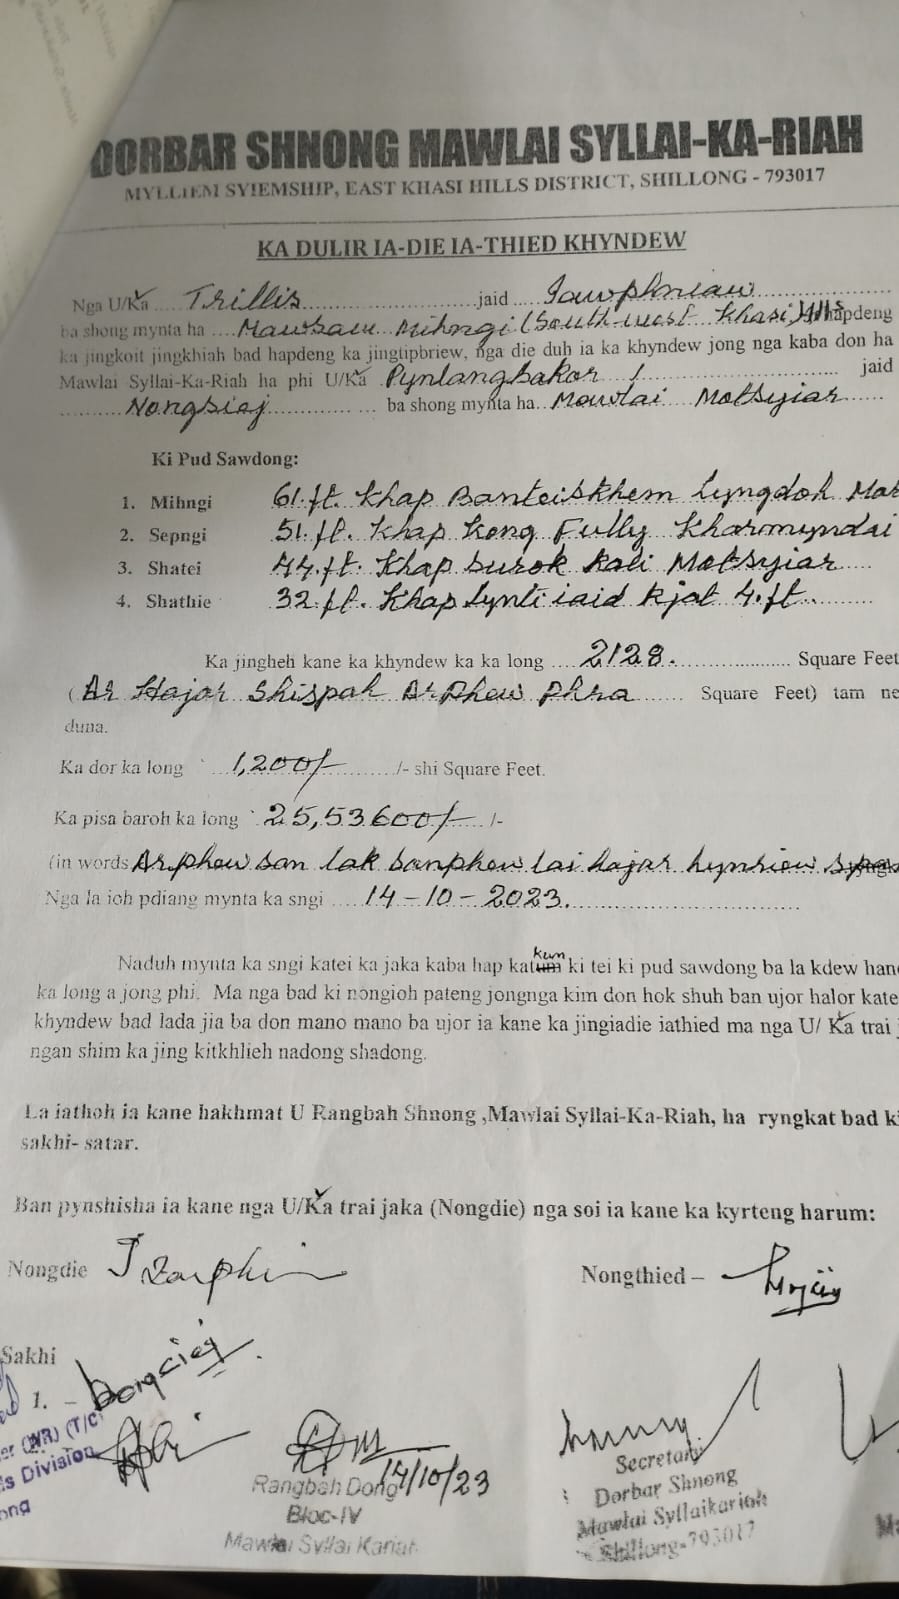 DORBAR SHNONG MAWLAI SYLLAI-KA-RIAH
MYLLIEM SYIEMSHIP, EAST KHASI HILLS DISTRICT, SHILLONG - 793017
KA DULIR IA-DIE IA-THIED KHYNDEW
Nga U/Ka Trillis jaid Iawphniaw
ba shong mynta ha Mawsaw Mihngi (South-west Khasi Hills hapdeng
ka jingkoit jingkhiah bad hapdeng ka jingtipbriew, nga die duh ia ka khyndew jong nga kaba don ha
Mawlai Syllai-Ka-Riah ha phi U/Ka Pynlangbakor jaid
Nongsiej ba shong mynta ha Mawlai Motsyiar
Ki Pud Sawdong:
1. Mihngi 61.ft. Khap Banteiskhem Lyngdoh Mar
2. Sepngi 51.ft. Khap Kong Fully Kharmyndai
3. Shatei 44.ft. Khap Surok Kali Motsyiar
4. Shathie 32.ft. Khap Lynti iaid Kjat 4.ft.
Ka jingheh kane ka khyndew ka ka long 2128. Square Feet
(Ar Hajar Shispah Arphew Phra Square Feet) tam ne
duna.
Ka dor ka long 1,200/- /- shi Square Feet.
Ka pisa baroh ka long 25,53600/- /-
(in words Arphew san lak sanphew lai hajar hynriew
Nga la ioh pdiang mynta ka sngi 14-10-2023.
Naduh mynta ka sngi katei ka jaka kaba hap katum kum ki tei ki pud sawdong ba la kdew han
ka long a jong phi. Ma nga bad ki nongioh pateng jongnga kim don hok shuh ban ujor halor kate
khyndew bad lada jia ba don mano mano ba ujor ia kane ka jingiadie iathied ma nga U/ Ka trai j
ngan shim ka jing kitkhlieh nadong shadong.
La iathoh ia kane hakhmat U Rangbah Shnong ,Mawlai Syllai-Ka-Riah, ha ryngkat bad ki
sakhi- satar.
Ban pynshisha ia kane nga U/Ka trai jaka (Nongdie) nga soi ia kane ka kyrteng harum:
Nongdie Nongthied –
Sakhi
1. –
(WR) (T/C)
s Division
ong
14/10/23
Rangbah Dong
Bloc-IV
Mawlai Syllai Kariah
Secretary
Dorbar Shnong
Mawlai Syllaikarioh
Shillong-793017